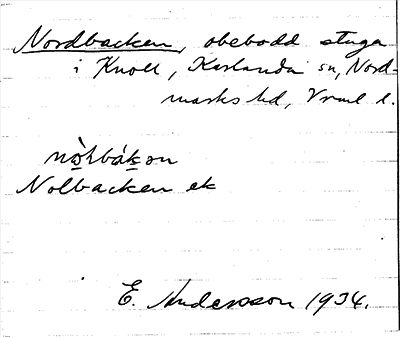 Nordbacken, obebodd stuga
i Knoll, Karlanda sn, Nord-
marks hd, Vrml l.
nòḷbákon
Nolbacken ek
E. Andersson 1934.